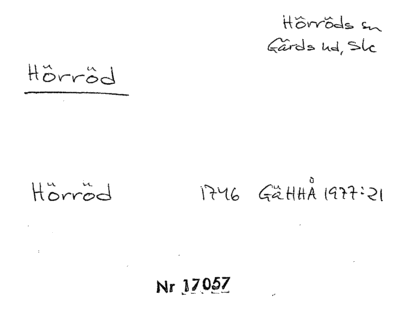 Hörröds sn
Gärds hd, Skc
Hörröd
Hörröd 1746 GäHHÅ 1977:21
Nr 17057